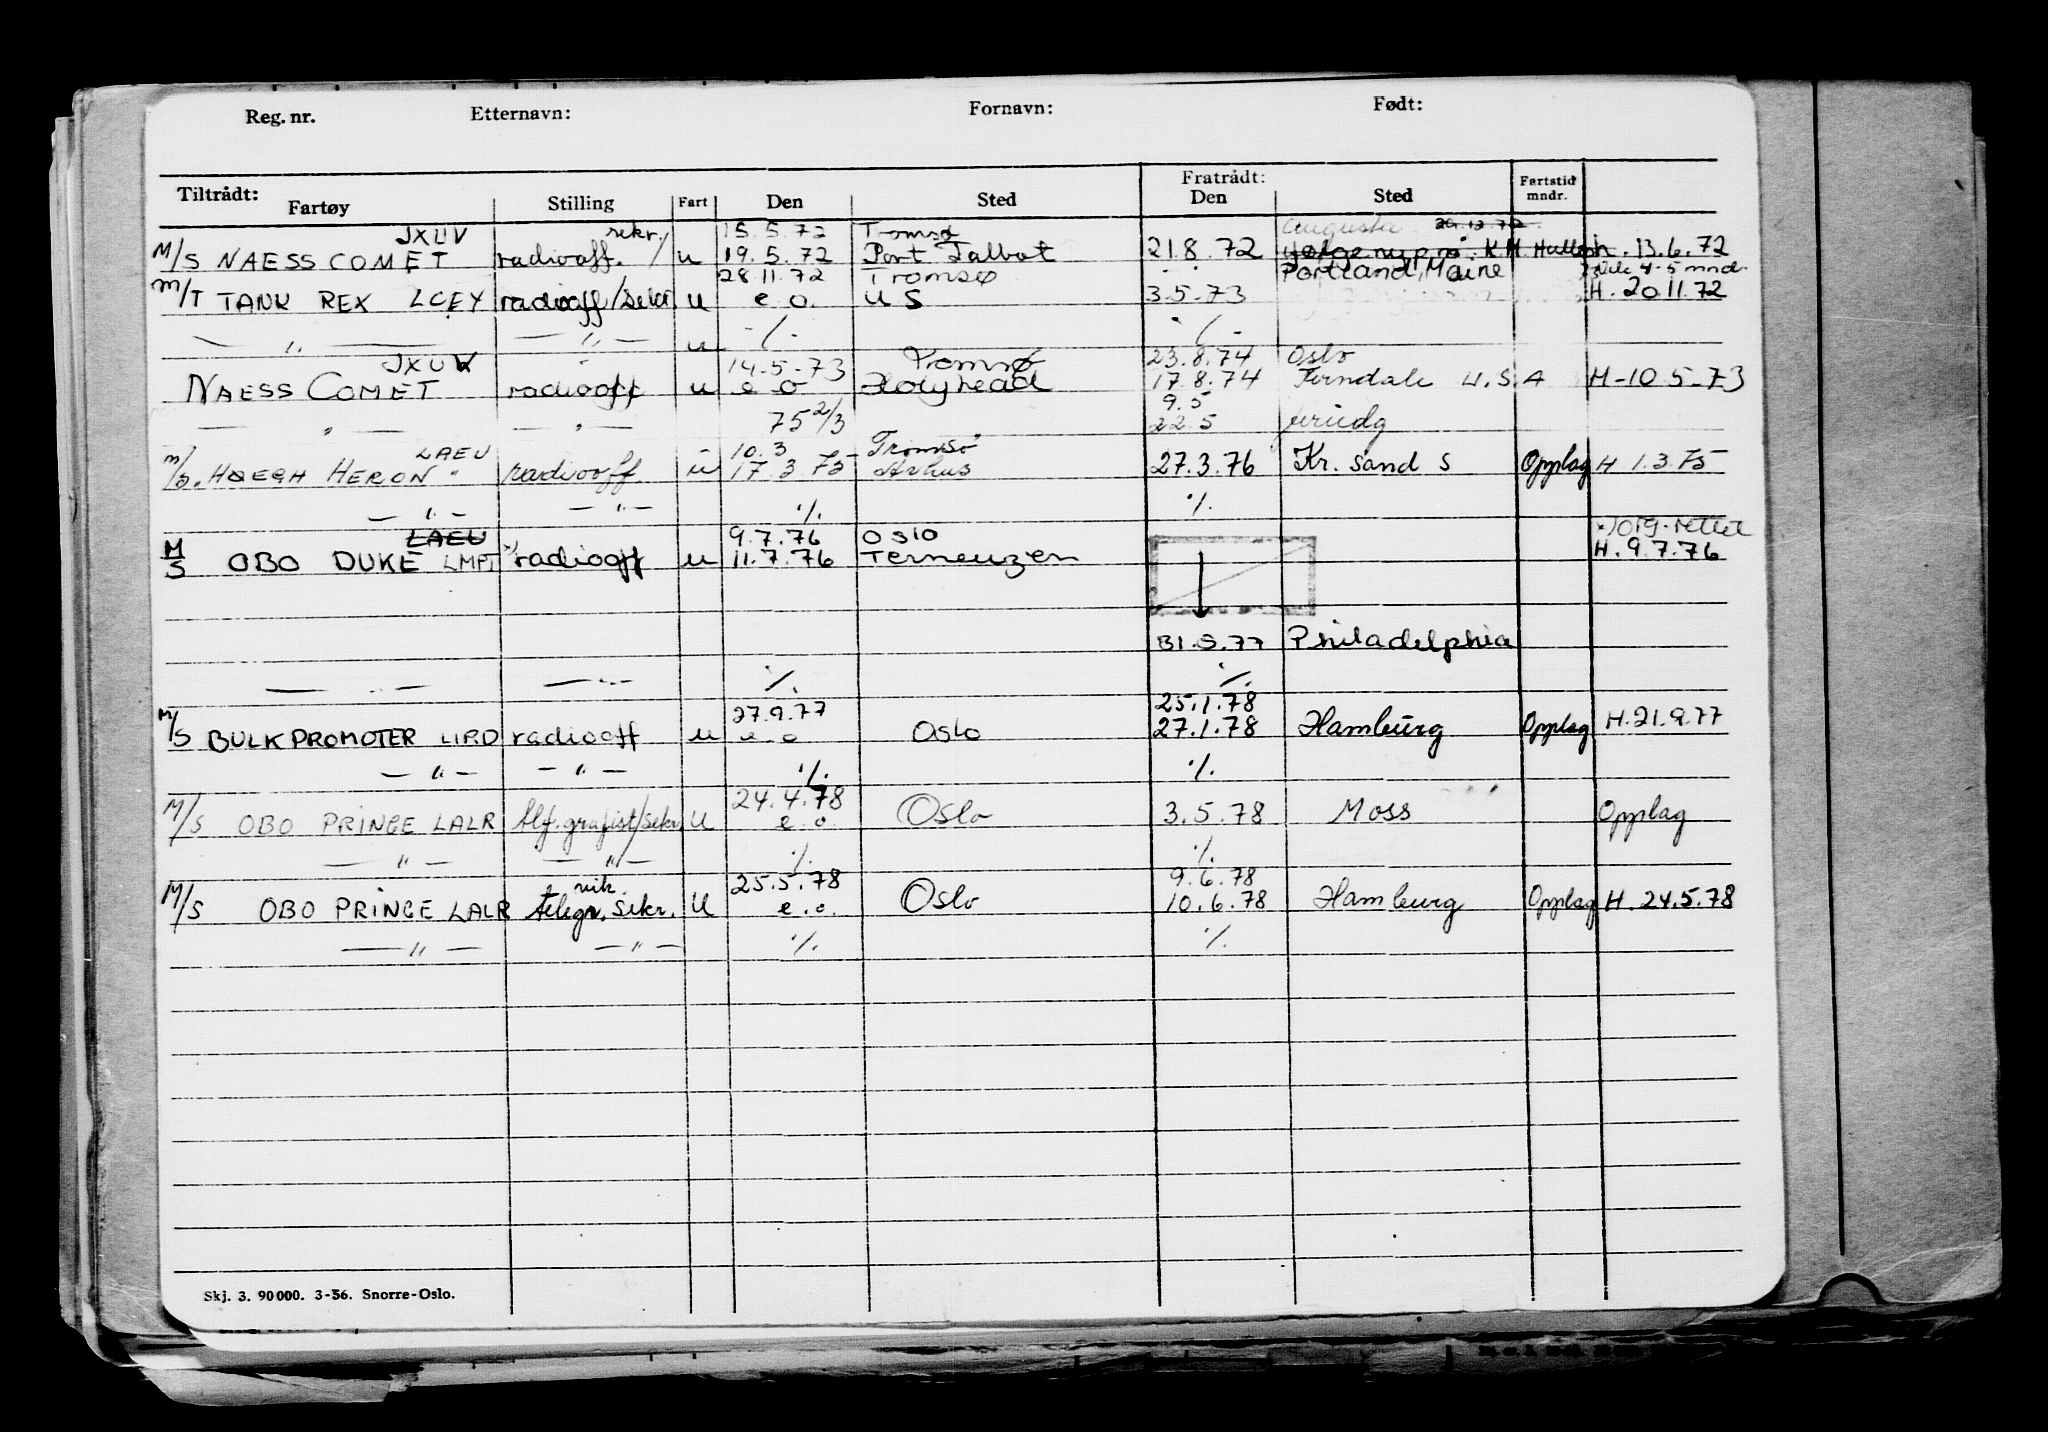 Reg. nr. Etternavn: Fornavn: Født:
Tiltrådt: Fratrådt: Fartstid
Fartøy Stilling Fart Den Sted Den Sted mndr.
JXUV sekr. 15.5.72 Tromsø Augusta 20.12.72
M/S NAESS COMET radiooff. / u 19.5.72 Port Talbot 21.8.72 K.M. 13.6.72
28.11.72 Tromsø Portland, Maine 4-5 mnd.
M/T TANK REX LCEY radiooff/sekr. u e.o. U S 3.5.73 H. 20.11.72
— " — — " — u ./. ./.
JXUV " 14.5.73 Tromsø 23.8.74 Oslo
NAESS COMET radiooff u e o Holyhead 17.8.74 Ferndale U.S.A H-10.5-73
— " — — " — 75 2/3 9.5
22.5
LAEU 10.3 Tromsø
m/s. HØEGH HERON " radiooff. u 17.3.75 Arhus 27.3.76 Kr. sand S Opplag H 1.3.75
— " — — " — ./. ./.
LAEU 9.7.76 OSLO x) orig. rettet
M/S OBO DUKE x) radiooff u 11.7.76 Terneuzen ↓ H. 9.7.76
31.8.77 Philadelphia
— " — — " — ./. ./.
27.9.77 25.1.78
M/S BULKPROMOTER LIRD radiooff u e.o Oslo 27.1.78 Hamburg Opplag H.21.9.77
— " — — " — ./. ./.
24.4.78
M/S OBO PRINCE LALR tlf.grafist/sekr. U e.o. Oslo 3.5.78 Moss Opplag
— " — — " — ./. ./.
vik. 25.5.78 9.6.78
M/S OBO PRINCE LALR telegr. sekr. U e.o. Oslo 10.6.78 Hamburg Opplag H. 24.5.78
— " — — " — ./. ./.
Skj. 3. 90000. 3-56. Snorre-Oslo.